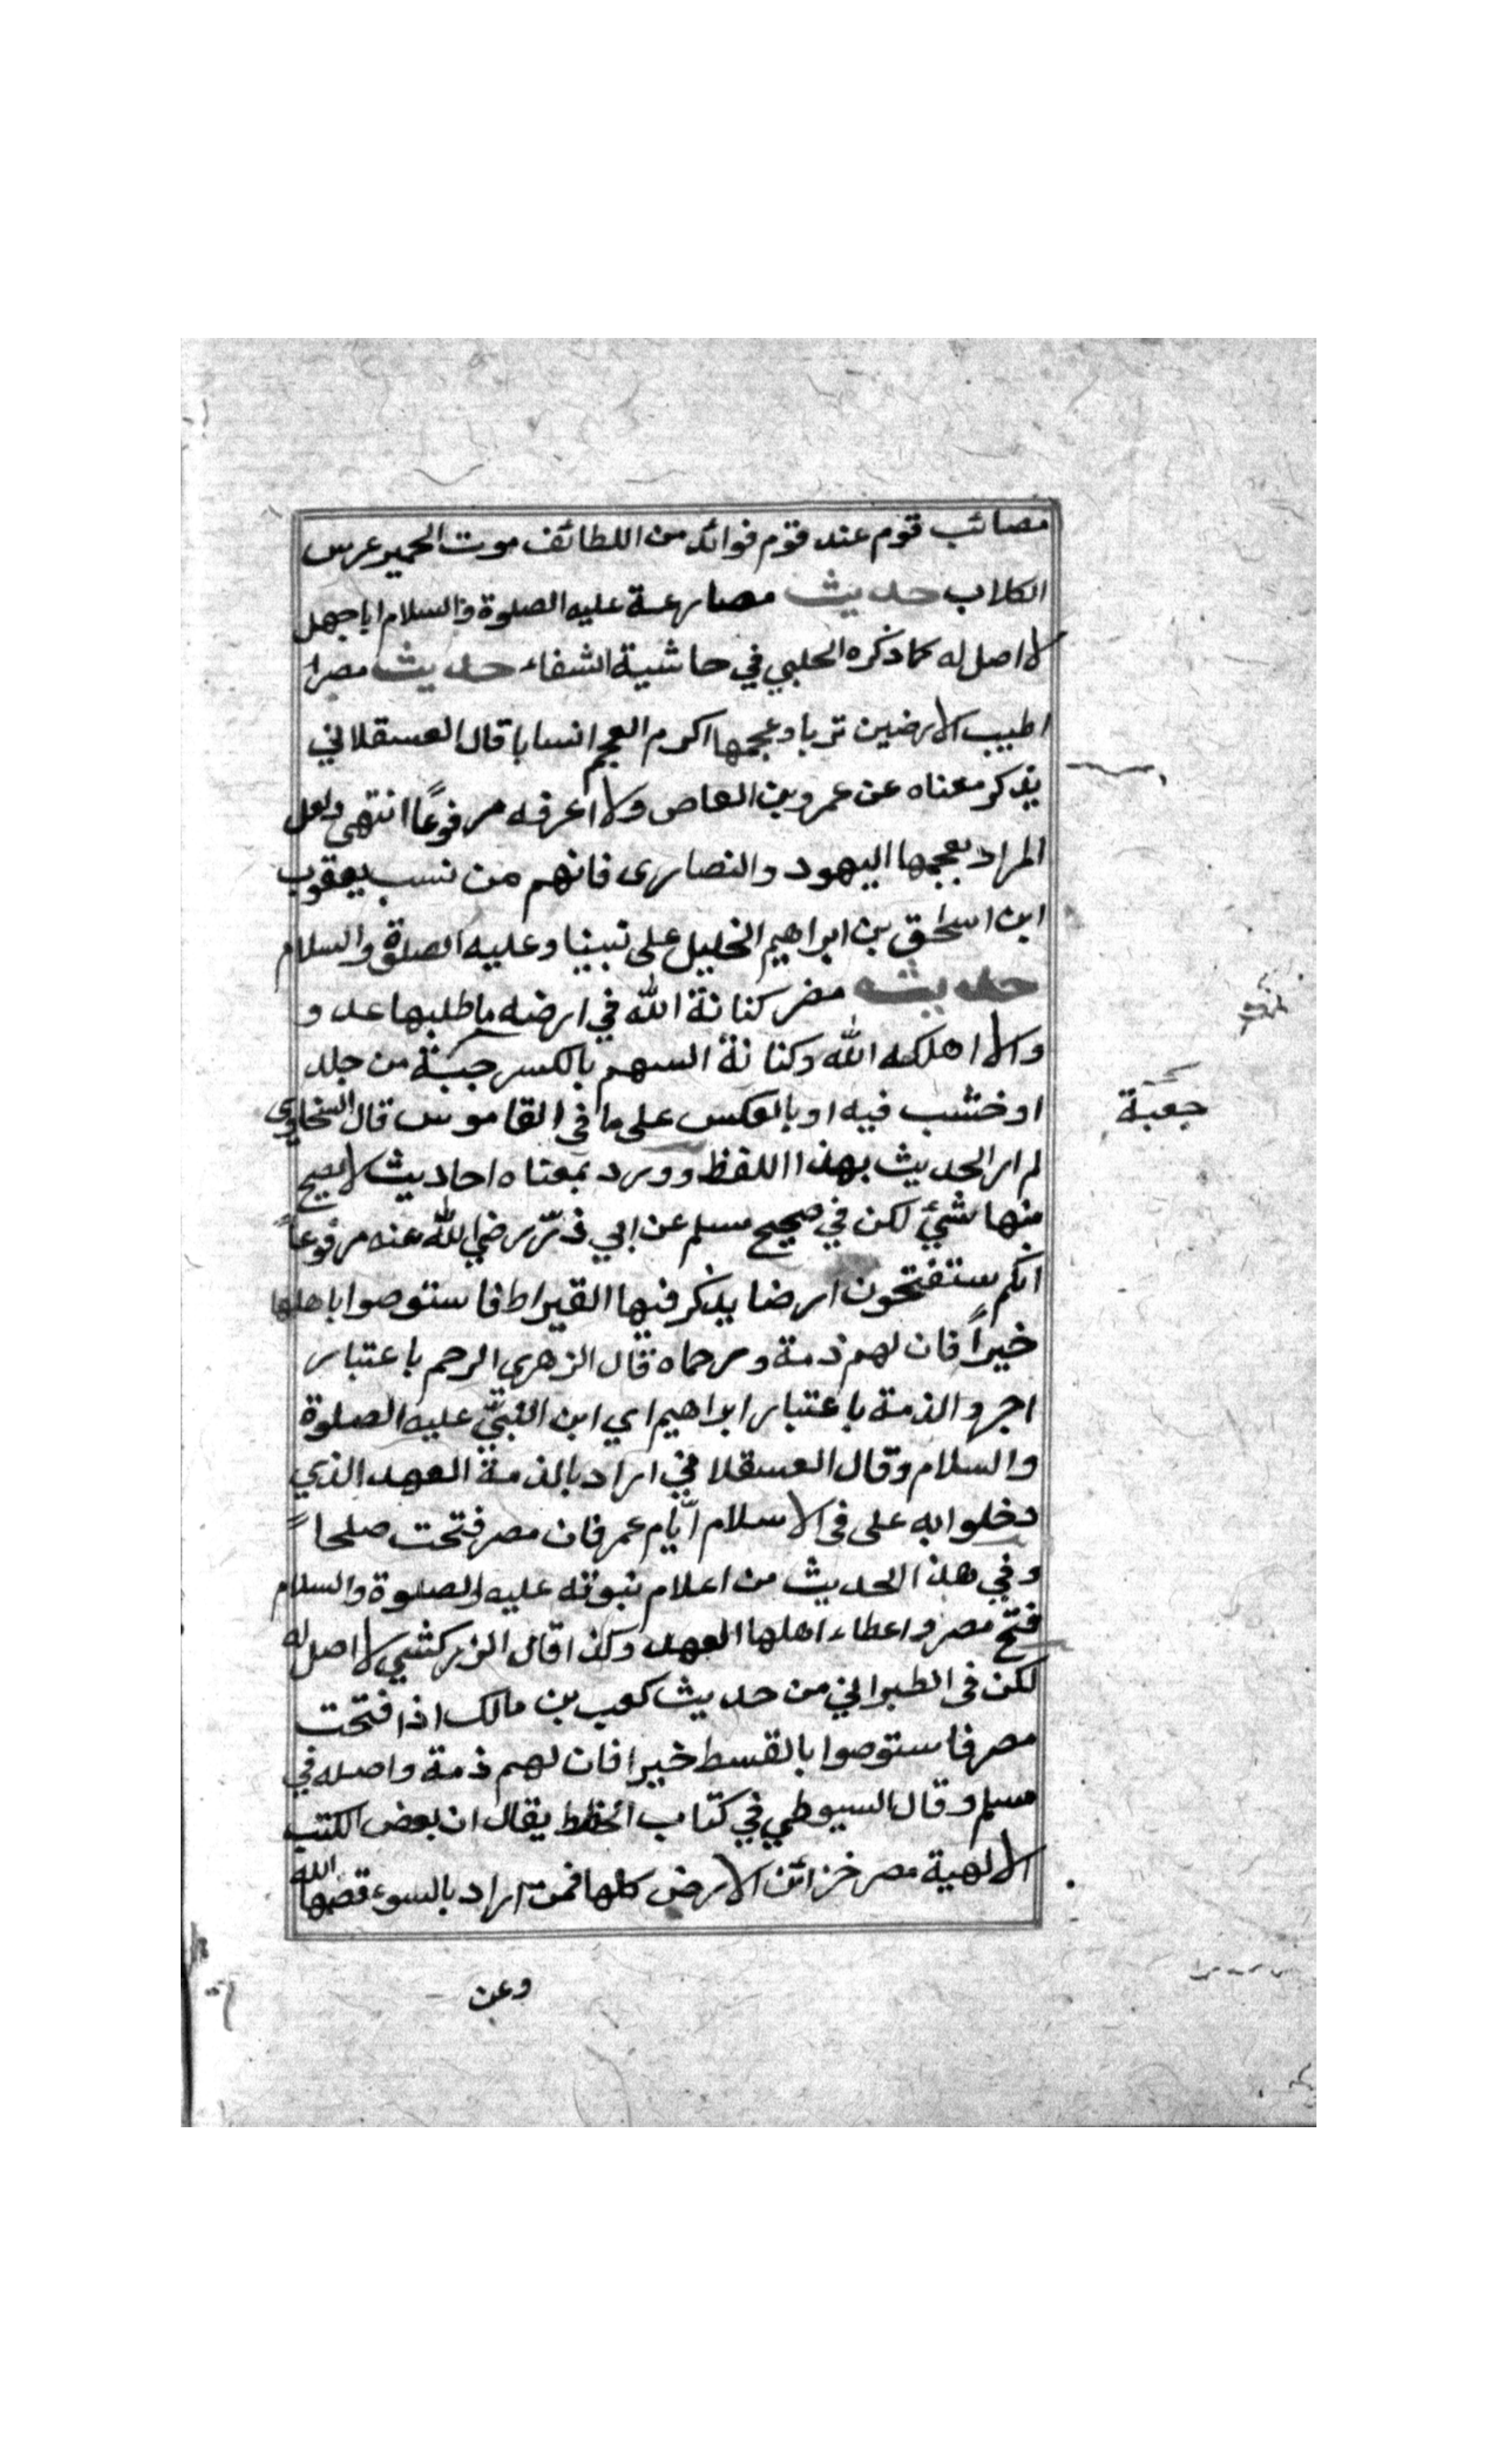 مصائب قوم عند قوم فوائد من اللطائف موت الحمير عرس
الكلاب حديث مصارعة عليه الصلوة والسلام اباجهل
لا اصل له كما ذكره الحلبي في حاشية الشفاء حديث مصرا
اطيب الارضين تربا وعجمها اكرم العجم انسابا قال العسقلاني
يذكر معناه عن عمرو بن العاص ولا اعرفه مرفوعًا انتهى ولعل
المراد بعجمها اليهود والنصارى فانهم من نسب يعقوب
ابن اسحق بن ابراهيم الخليل على نبينا وعليه الصلوة والسلام
حديث مضر كنانة الله في ارضه ما طلبها عدو
والا اهلكه الله وكنانة السهم بالكسر جبة من جلد
جعبة
او خشب فيه او بالعكس على ما في القاموس قال السخاوى
لم ار الحديث بهذا اللفظ وورد بمعناه احاديث لا يصح
منها شيئ لكن في صحيح مسلم عن ابي ذرّ رضي الله عنه مرفوعاً
انكم ستفتحون ارضا يذكر فيها القيراط فاستوصوا باهلها
خيراً فان لهم ذمة ورحماه قال الزهرى الرحم باعتبار
اجر والذمة باعتبار ابراهيم اي ابن النبيّ عليه الصلوة
والسلام وقال العسقلاني اراد بالذمة العهد الذي
دخلوا به على فى الاسلام ايّام عمر فان مصر فتحت صلحاً
وفي هذا الحديث من اعلام نبوته عليه الصلوة والسلام
فتح مصر واعطاء اهلها العهد وكذا قال الزركشي لا اصل له
لكن فى الطبراني من حديث كعب بن مالك اذا فتحت
مصر فاستوصوا بالقسط خيرا فان لهم ذمة واصله في
مسلم وقال السيوطي في كتاب الخطط يقال ان بعض الكتب
الالهية مصر خزائن الارض كلها فمن اراد بالسوء قصمها الله
وعن